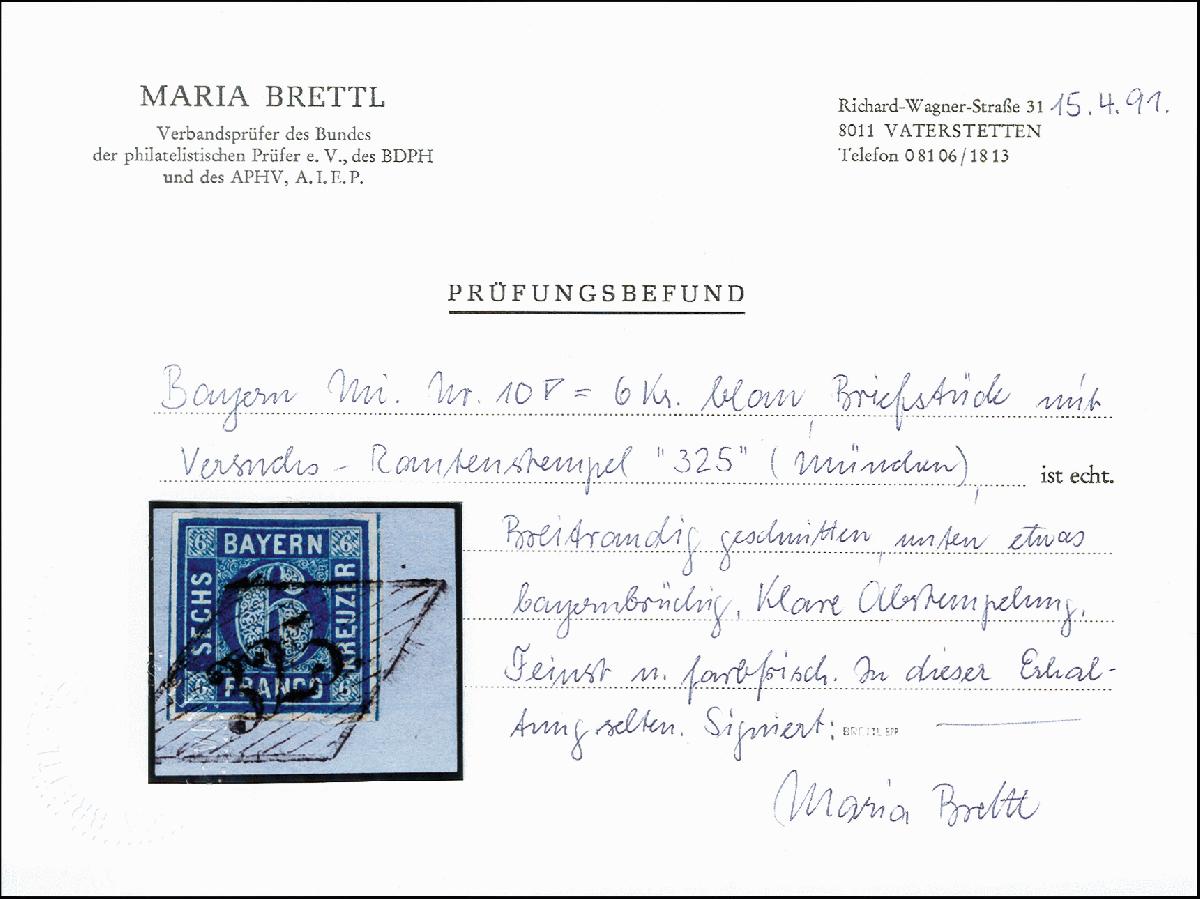 MARIA BRETTL
Verbandsprüfer des Bundes
der philatelistischen Prüfer e. V., des BDPH
und des APHV, A.I.E.P.
Richard-Wagner-Straße 31 15.4.91.
8011 VATERSTETTEN
Telefon 08106/1813
PRÜFUNGSBEFUND
Bayern Mi. Nr. 10 = 6 Kr. blau, Briefstück mit
Versuchs-Rautenstempel "325" (München),
ist echt.
Breitrandig geschnitten, unten etwas
bayernbrüchig. Klare Abstempelung.
Feinst u. farbfrisch. In dieser Erhal-
tung selten. Signiert:
Maria Brettl
6 BAYERN 6
SECHS
6
KREUZER
6 FRANCO 6
325